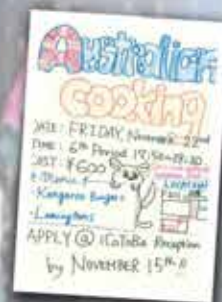 Australian
COOKING
DATE: FRIDAY, November 22nd
TIME: 6th Period 17:50~19:30
COST: ¥600
Location
- Kangaroo Burgers
- Lamingtons
APPLY @ iCoToBa Reception
by NOVEMBER 15th!!